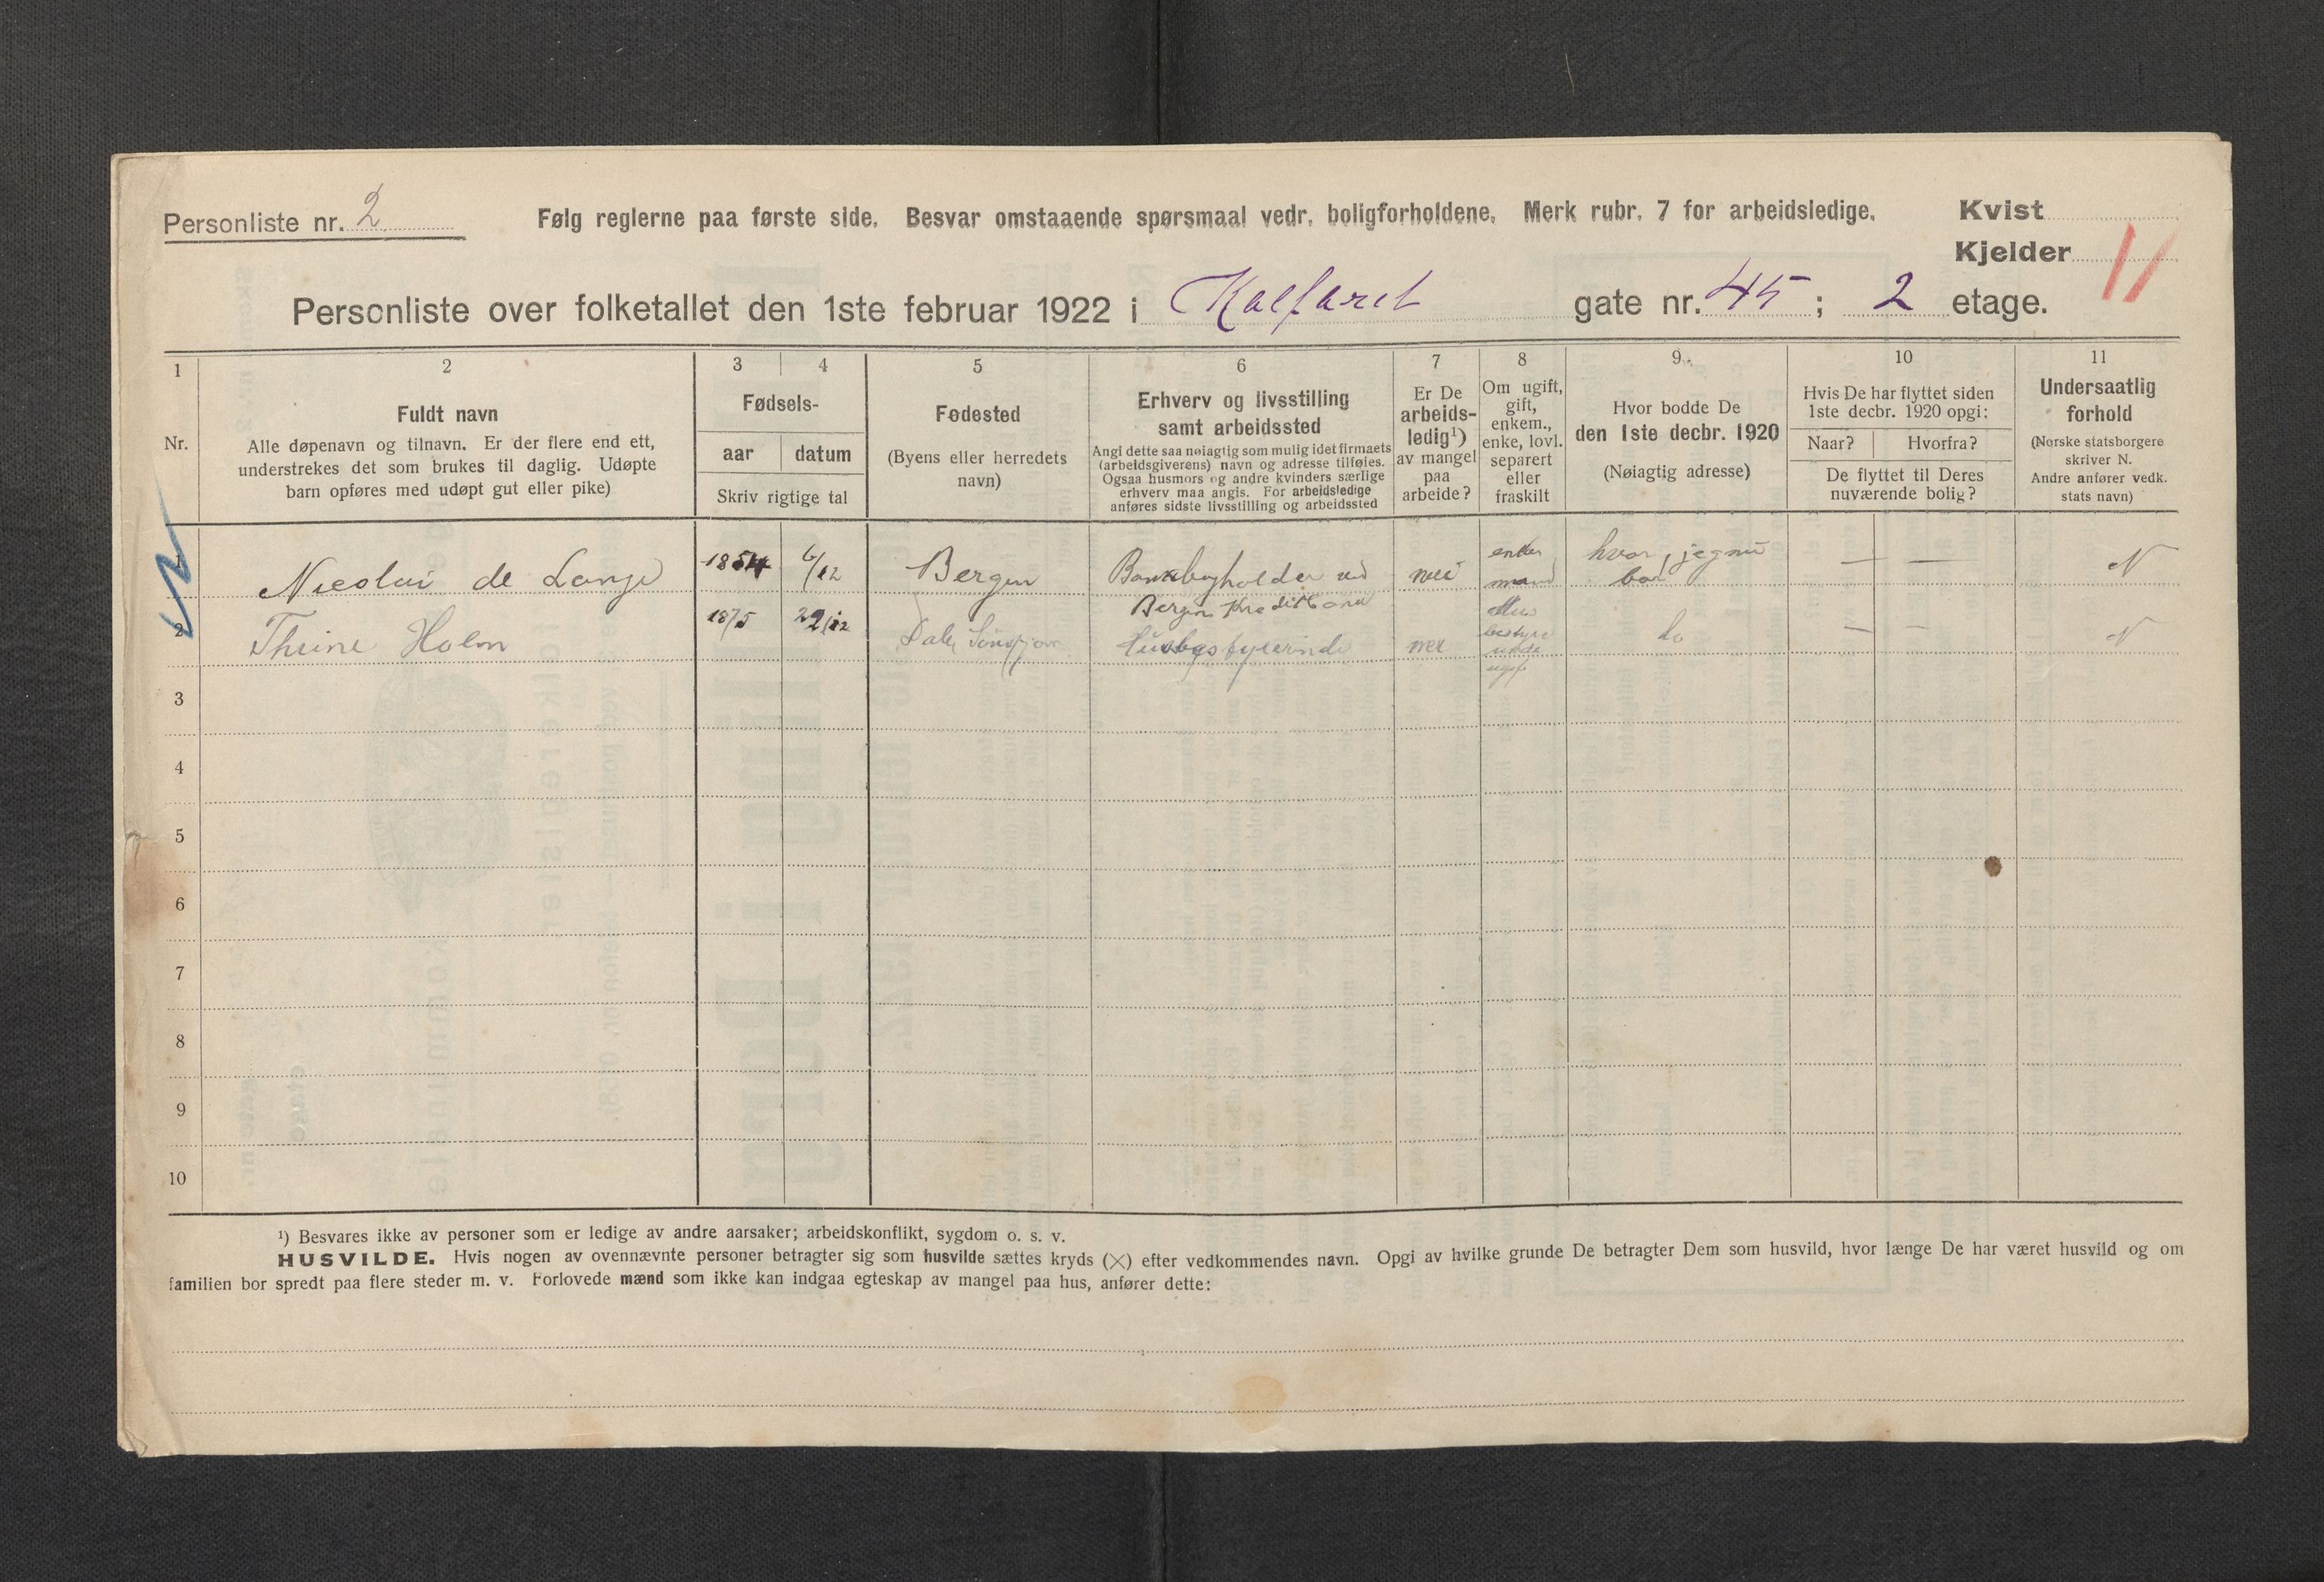 Personliste nr. 2
Følg reglerne paa første side. Besvar omstaaende spørsmaal vedr. boligforholdene. Merk rubr. 7 for arbeidsledige.
Kvist
Kjelder
Personliste over folketallet den 1ste februar 1922 i Kalfaret gate nr. 45 ; 2 etage.
1 2 3 4 5 6 7 8 9 10 11
Nr.
Fuldt navn
Alle døpenavn og tilnavn. Er der flere end ett,
understrekes det som brukes til daglig. Udøpte
barn opføres med udøpt gut eller pike)
Fødsels-
aar datum
Skriv rigtige tal
Fødested
(Byens eller herredets
navn)
Erhverv og livsstilling
samt arbeidssted
Angi dette saa nøiagtig som mulig idet firmaets
(arbeidsgiverens) navn og adresse tilføies.
Ogsaa husmors og andre kvinders særlige
erhverv maa angis. For arbeidsledige
anføres sidste livsstilling og arbeidssted
Er De
arbeids-
ledig¹)
av mangel
paa
arbeide?
Om ugift,
gift,
enkem.,
enke, lovl.
separert
eller
fraskilt
Hvor bodde De
den 1ste decbr. 1920
(Nøiagtig adresse)
Hvis De har flyttet siden
1ste decbr. 1920 opgi:
Naar? Hvorfra?
De flyttet til Deres
nuværende bolig?
Undersaatlig
forhold
(Norske statsborgere
skriver N.
Andre anfører vedk.
stats navn)
1 Nicolai de Lange 1854 6/12 Bergen Bankbogholder ved nei enke hvor jeg nu — — N
Bergens Kreditbank mand bor
2 Thrine Holm 1875 22/12 Dale Søndfjor Husbestyrerinde nei do — — N
3
4
5
6
7
8
9
10
¹) Besvares ikke av personer som er ledige av andre aarsaker; arbeidskonflikt, sygdom o. s. v.
HUSVILDE. Hvis nogen av ovennævnte personer betragter sig som husvilde sættes kryds (×) efter vedkommendes navn. Opgi av hvilke grunde De betragter Dem som husvild, hvor længe De har været husvild og om
familien bor spredt paa flere steder m. v. Forlovede mænd som ikke kan indgaa egteskap av mangel paa hus, anfører dette: